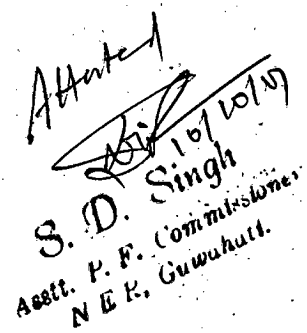 Attested
10/10/07
S. D. Singh
Asstt. P. F. Commissioner
N E R, Guwahati.